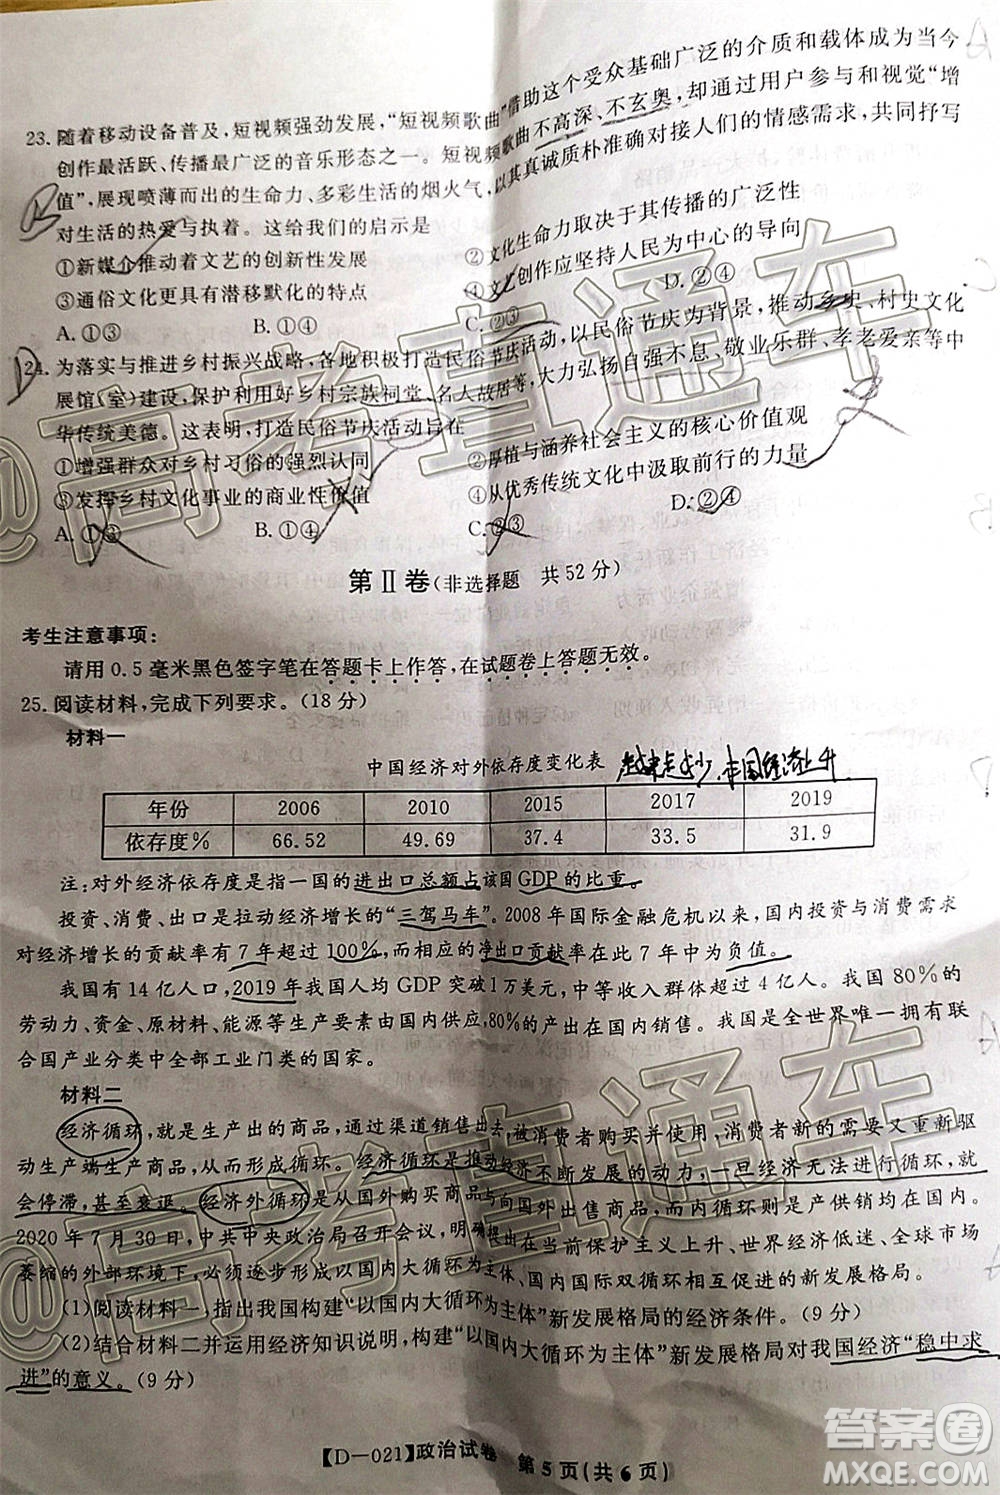 23. 随着移动设备普及，短视频强劲发展，“短视频歌曲”借助这个受众基础广泛的介质和载体成为当今
创作最活跃、传播最广泛的音乐形态之一。短视频歌曲不高深、不玄奥，却通过用户参与和视觉“增
值”，展现喷薄而出的生命力、多彩生活的烟火气，以其真诚质朴准确对接人们的情感需求，共同抒写
对生活的热爱与执着。这给我们的启示是
①新媒介推动着文艺的创新性发展 ②文化生命力取决于其传播的广泛性
③通俗文化更具有潜移默化的特点 ④文艺创作应坚持人民为中心的导向
A. ①③ B. ①④ C. ②③ D. ②④
24. 为落实与推进乡村振兴战略，各地积极打造民俗节庆活动，以民俗节庆为背景，推动乡史、村史文化
展馆（室）建设，保护利用好乡村宗族祠堂、名人故居等，大力弘扬自强不息、敬业乐群、孝老爱亲等中
华传统美德。这表明，打造民俗节庆活动有利于
①增强群众对乡村习俗的强烈认同 ②厚植与涵养社会主义的核心价值观
③发挥乡村文化事业的商业性价值 ④从优秀传统文化中汲取前行的力量
A. ①③ B. ①④ C. ②③ D. ②④
第Ⅱ卷（非选择题 共52分）
考生注意事项：
请用0.5毫米黑色签字笔在答题卡上作答，在试题卷上答题无效。
25. 阅读材料，完成下列要求。（18分）
材料一
中国经济对外依存度变化表
年份 2006 2010 2015 2017 2019
依存度% 66.52 49.69 37.4 33.5 31.9
注：对外经济依存度是指一国的进出口总额占该国GDP的比重。
投资、消费、出口是拉动经济增长的“三驾马车”。2008年国际金融危机以来，国内投资与消费需求
对经济增长的贡献率有7年超过100%，而相应的净出口贡献率在此7年中为负值。
我国有14亿人口，2019年我国人均GDP突破1万美元，中等收入群体超过4亿人。我国80%的
劳动力、资金、原材料、能源等生产要素由国内供应，80%的产出在国内销售。我国是全世界唯一拥有联
合国产业分类中全部工业门类的国家。
材料二
经济循环，就是生产出的商品，通过渠道销售出去，被消费者购买并使用，消费者新的需要又重新驱
动生产端生产商品，形成循环。经济循环是推动经济不断发展的动力，一旦经济无法进行循环，就
会停滞，甚至衰退。经济外循环是从国外购买商品与向国外出售商品，而内循环是产供销均在国内。
2020年7月30日，中共中央政治局召开会议，明确在当前保护主义上升、世界经济低迷、全球市场
萎缩的外部环境下，必须逐步形成以国内大循环为主体、国内国际双循环相互促进的新发展格局。
（1）阅读材料一，指出我国构建“以国内大循环为主体”新发展格局的经济条件。（9分）
（2）结合材料二并运用经济知识说明，构建“以国内大循环为主体”新发展格局对我国经济“稳中求
进”的意义。（9分）
【D—021】政治试卷 第5页（共6页）
@高考直通车
@高考直通车
答案圈
MXQE.COM